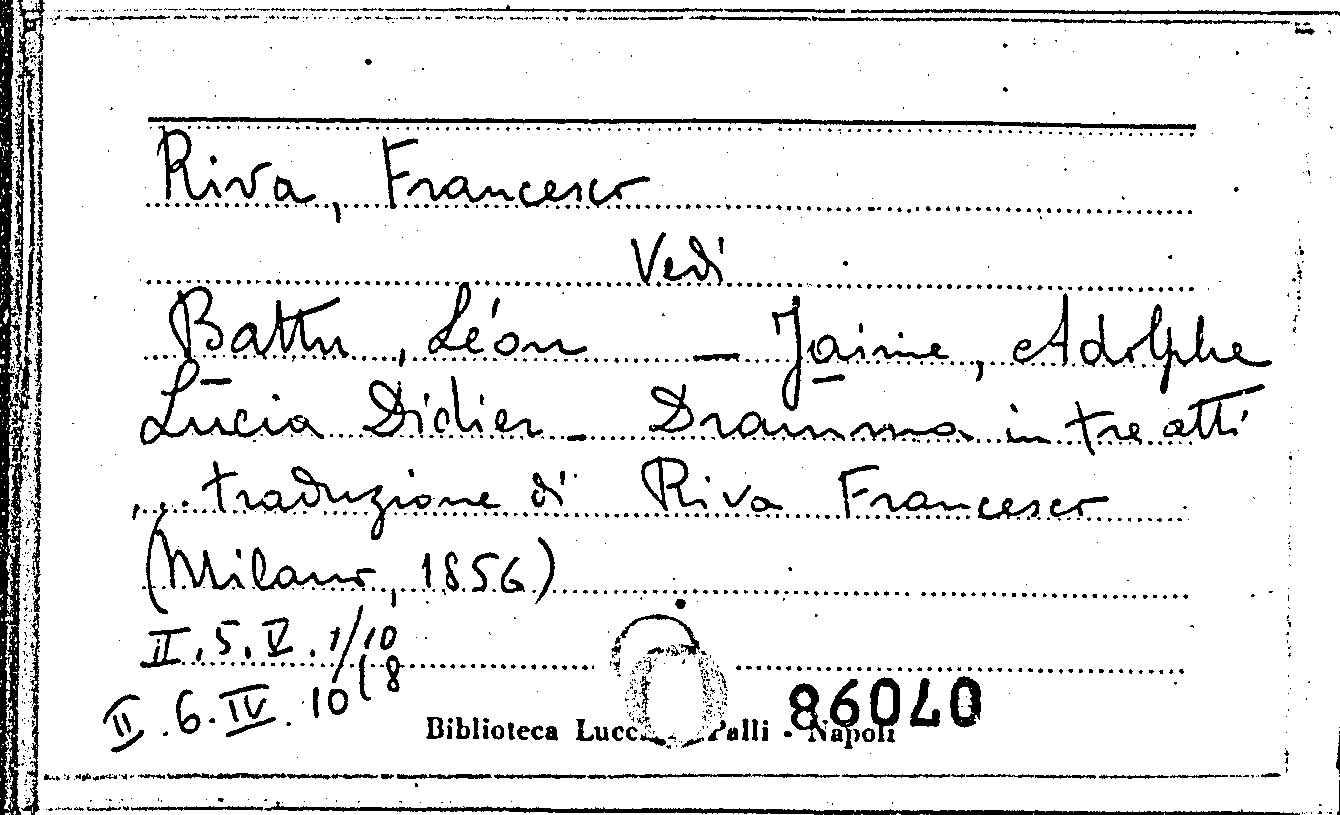 Riva, Francesco
Vedi
Battu, Léon — Jaime, Adolphe
Lucia Didier – Dramma in tre atti
... traduzione di Riva Francesco
(Milano, 1856)
II.5.V.1/10
II.6.IV.10(8
86040
Biblioteca Lucc Palli - Napoli